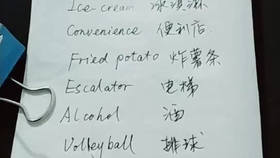 Ice-cream 冰淇淋
Convenience 便利店
Fried potato 炸薯条
Escalator 电梯
Alcohol 酒
Volleyball 排球